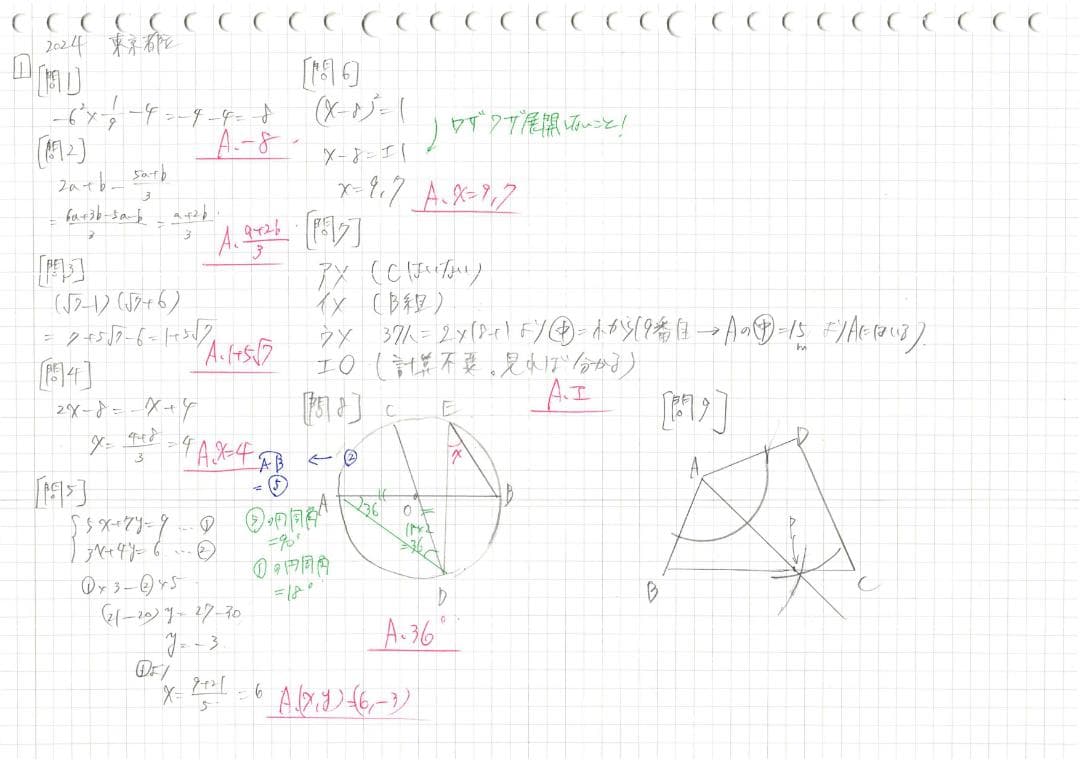 2024 東京都立
1
[問1]
-6²×1/9-4=-4-4=-8
A. -8
[問2]
2a+b-(5a+b)/3
=(6a+3b-5a-b)/3=(a+2b)/3
A. (a+2b)/3
[問3]
(√7-1)(√7+6)
=7+5√7-6=1+5√7
A. 1+5√7
[問4]
2x-8=-x+4
x=(4+8)/3=4
A. x=4
[問5]
5x+7y=9 …①
3x+4y=6 …②
①×3-②×5
(21-20)y=27-30
y=-3
①より
x=(9+21)/5=6
A. (x,y)=(6,-3)
[問6]
(x-8)²=1
ワザワザ展開しないこと!
x-8=±1
x=9,7
A. x=9,7
[問7]
ア×(Cはいない)
イ×(B組)
ウ× 37人=2×18+1より㊥=小から19番目→Aの㊥=15mよりAにはいる).
エ○(計算不要。見れば分かる)
A. エ
[問8]
C E
x
AB ← ②
=⑤
A B
36
O
18×2
=36
⑤の円周角
=90°
①の円周角
=18°
D
A. 36°
[問9]
D
A
P
B C